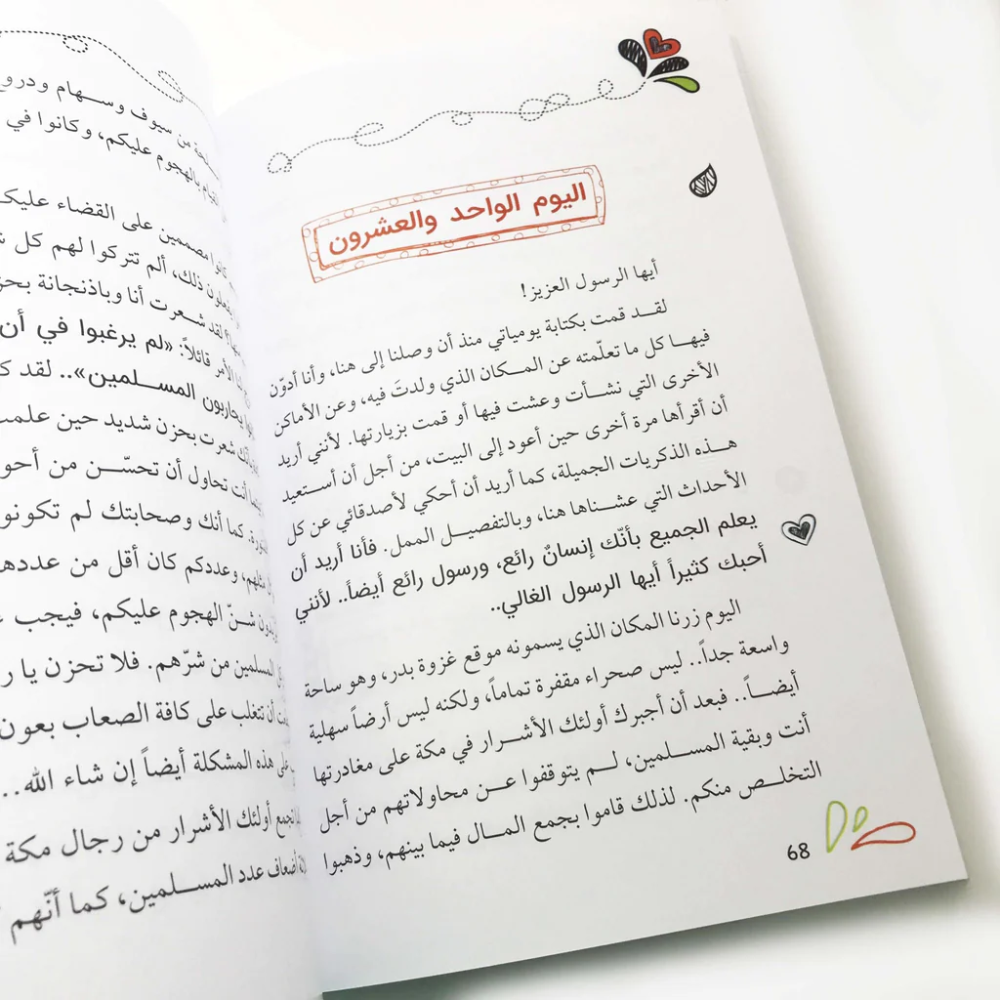 اليوم الواحد والعشرون
أيها الرسول العزيز!
لقد قمت بكتابة يومياتي منذ أن وصلنا إلى هنا، وأنا أدوّن
فيها كل ما تعلّمته عن المكان الذي ولدتَ فيه، وعن الأماكن
الأخرى التي نشأت وعشت فيها أو قمت بزيارتها. لأنني أريد
أن أقرأها مرة أخرى حين أعود إلى البيت، من أجل أن أستعيد
هذه الذكريات الجميلة، كما أريد أن أحكي لأصدقائي عن كل
الأحداث التي عشناها هنا، وبالتفصيل الممل. فأنا أريد أن
يعلم الجميع بأنّك إنسانٌ رائع، ورسول رائع أيضاً.. لأنني
أحبك كثيراً أيها الرسول الغالي..
اليوم زرنا المكان الذي يسمونه موقع غزوة بدر، وهو ساحة
واسعة جداً.. ليس صحراء مقفرة تماماً، ولكنه ليس أرضاً سهلية
أيضاً.. فبعد أن أجبرك أولئك الأشرار في مكة على مغادرتها
أنت وبقية المسلمين، لم يتوقفوا عن محاولاتهم من أجل
التخلص منكم. لذلك قاموا بجمع المال فيما بينهم، وذهبوا
68
من سيوف وسهام ودروع
بالهجوم عليكم، وكانوا في
كانوا مصممين على القضاء عليكم
ذلك، ألم تتركوا لهم كل
لقد شعرت أنا وباذنجانة بحزن
الأمر قائلاً: «لم يرغبوا في أن
يحاربون المسلمين».. لقد
شعرت بحزن شديد حين علمت
أنت تحاول أن تحسّن من
كما أنك وصحابتك لم تكونوا
وعددكم كان أقل من عددهم
شنّ الهجوم عليكم، فيجب
المسلمين من شرّهم. فلا تحزن يا
أن نتغلب على كافة الصعاب بعون
على هذه المشكلة أيضاً إن شاء الله..
أولئك الأشرار من رجال مكة
أضعاف عدد المسلمين، كما أنّهم